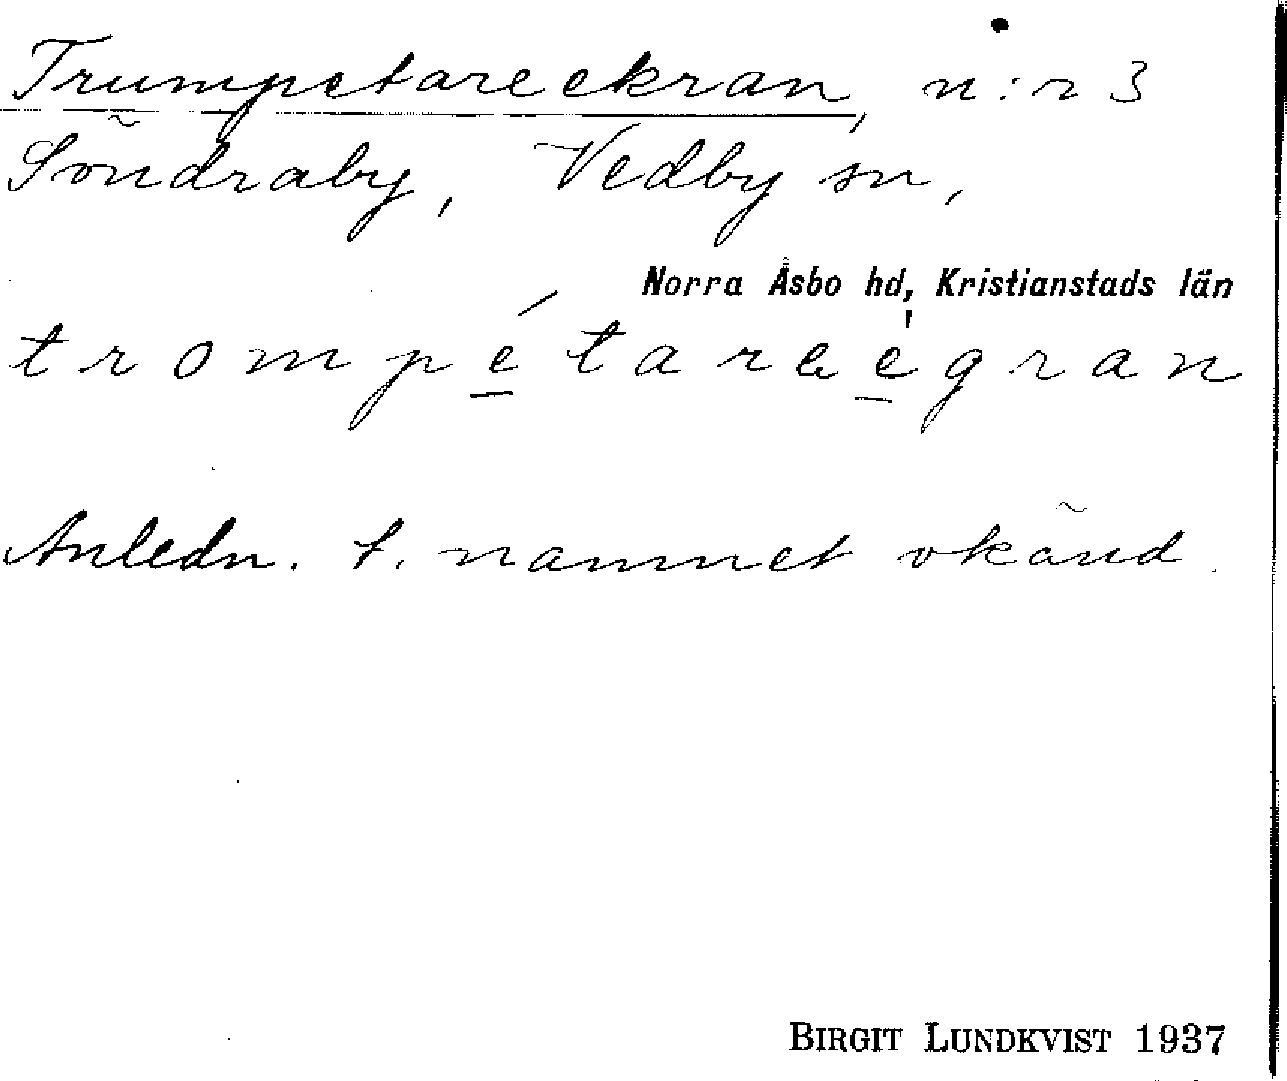 Trumpetareekran, n:r 3
Söndraby, Vedby sn,
Norra Åsbo hd, Kristianstads län
trompétareégran
Anledn. t. namnet okänd.
BIRGIT LUNDKVIST 1937